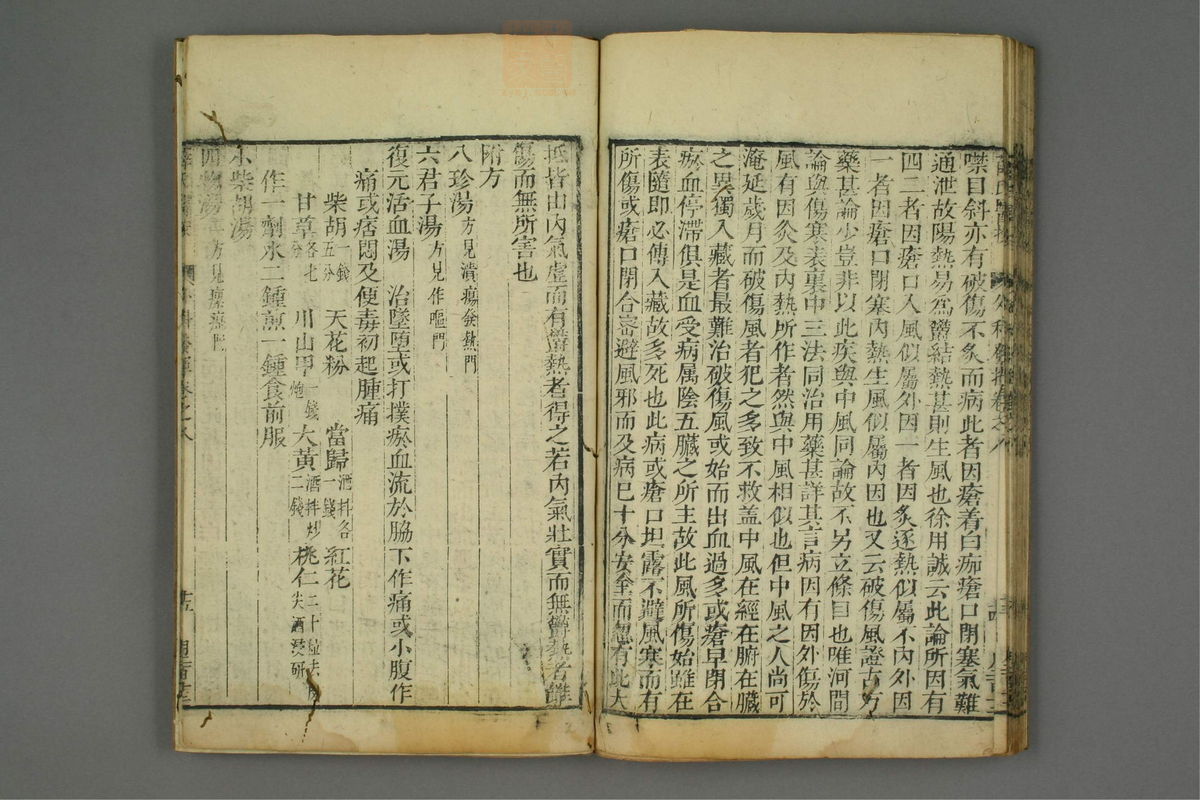 噤目斜亦有破傷不灸而病此者因瘡着白痂瘡口閉塞氣難
通泄故陽熱易爲鬱結熱甚則生風也徐用誠云此論所因有
四二者因瘡口入風似屬外因一者因灸逐熱似屬不內外因
一者因瘡口閉塞內熱生風似屬內因也又云破傷風證古方
藥甚論少豈非以此疾與中風同論故不另立條目也唯河間
論與傷寒表裏中三法同治用藥甚詳其言病因有因外傷於
風有因灸及內熱所作者然與中風相似也但中風之人尚可
淹延歲月而破傷風者犯之多致不救蓋中風在經在腑在臟
之異獨入藏者最難治破傷風或始而出血過多或瘡早閉合
瘀血停滯俱是血受病属陰五臟之所主故此風所傷始雖在
表隨即必傳入藏故多死也此病或瘡口坦露不避風寒而有
所傷或瘡口閉合密避風邪而及病已十分安全而忽有此大
抵皆由內氣虛而有鬱熱者得之若內氣壯實而無鬱熱者雖
傷而無所害也
附方
八珍湯方見潰瘍發熱門
六君子湯方見作嘔門
復元活血湯 治墜墮或打撲瘀血流於脇下作痛或小腹作
痛或痞悶及便毒初起腫痛
柴胡一錢五分 天花粉 當歸酒拌各一錢 紅花
甘草各七分 川山甲一錢炮 大黃酒拌炒二錢 桃仁二十粒去皮尖酒浸研
作一劑水二鍾煎一鍾食前服
小柴胡湯
四物湯二方見瘰癧門